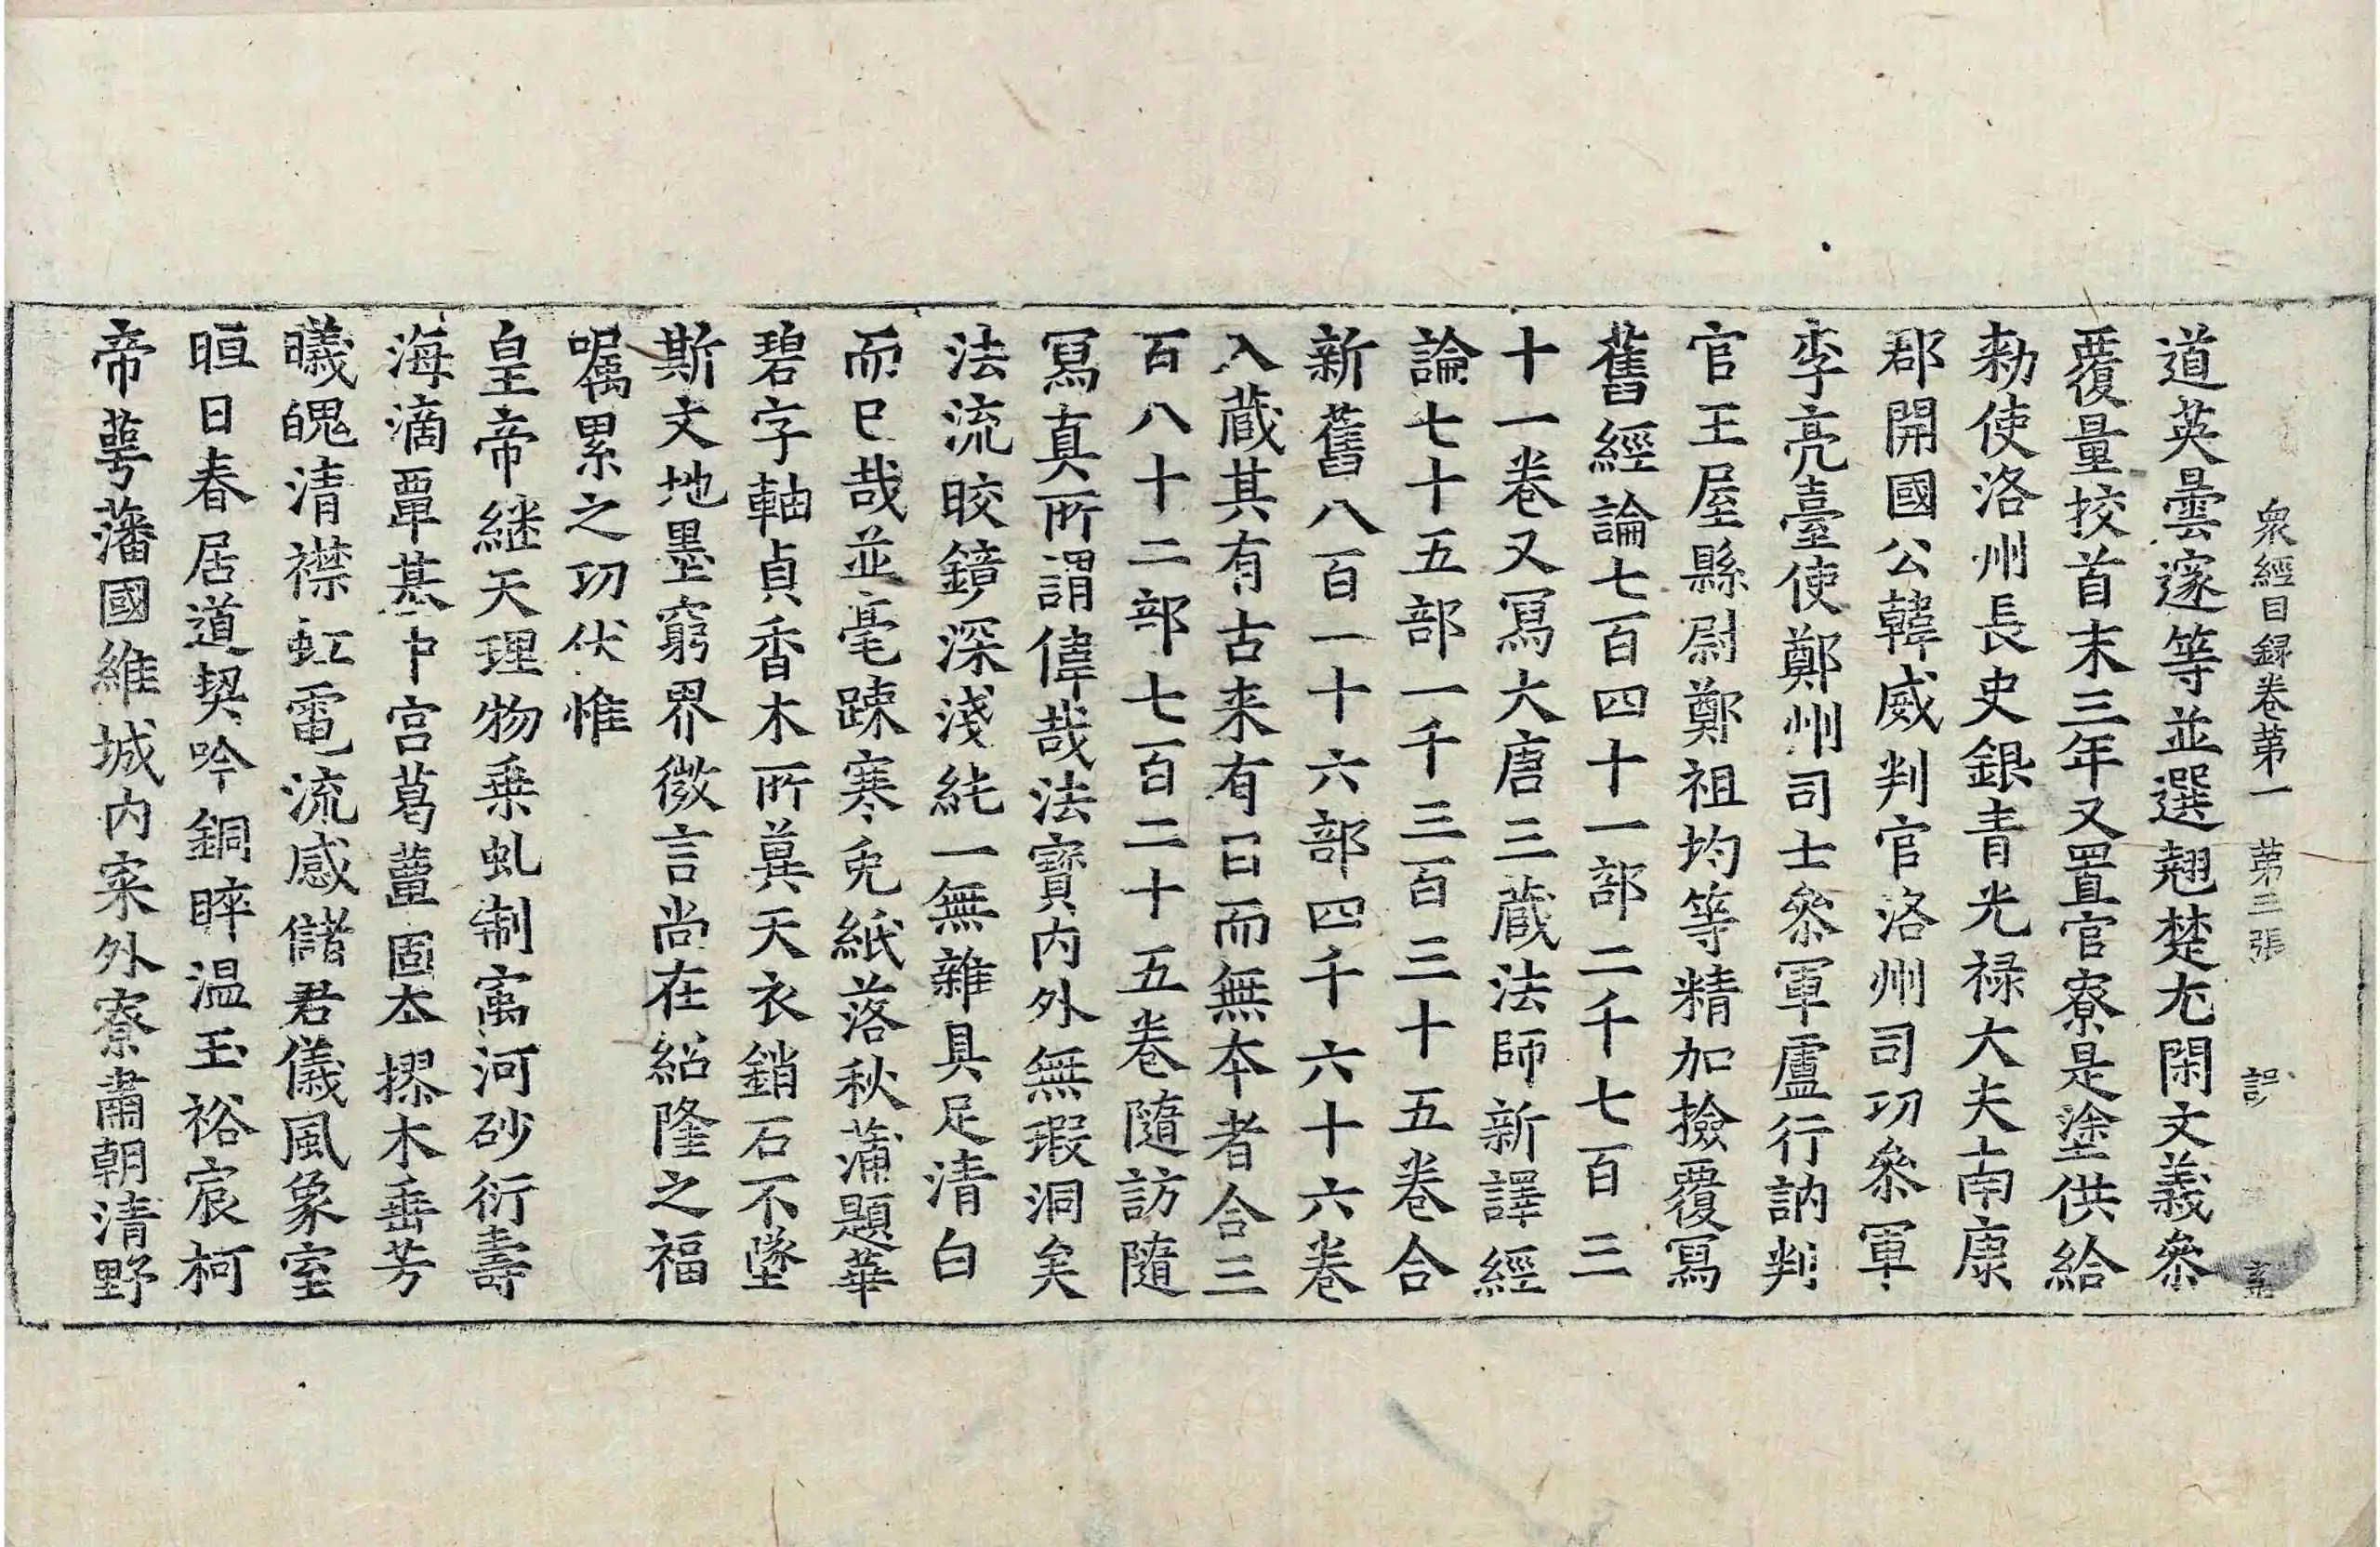 衆經目録卷第一 第三張 誩
道英曇邃等並選翹楚尤閑文義叅
覆量挍首末三年又置官寮是塗供給
勑使洛州長史銀青光禄大夫南康
郡開國公韓威判官洛州司功叅軍
李亮臺使鄭州司士叅軍盧行訥判
官王屋縣尉鄭祖均等精加撿覆寫
舊經論七百四十一部二千七百三
十一卷又寫大唐三藏法師新譯經
論七十五部一千三百三十五卷合
新舊八百一十六部四千六十六卷
入藏其有古来有目而無本者合三
百八十二部七百二十五卷隨訪隨
寫真所謂偉哉法寶内外無瑕洞矣
法流皎鏡深淺純一無雜具足清白
而已哉並毫踈寒兔紙落秋蒲題華
碧字軸貞香木所兾天衣銷石不墜
斯文地墨窮界微言尚在紹隆之福
囑累之功伏惟
皇帝継天理物乗虬制寓河砂衍壽
海滴覃基中宫葛藟固夲摎木垂芳
曦魄清襟虹電流感儲君儀風象室
晅日春居道契吟銅睟温玉裕宸柯
帝萼藩國維城内寀外寮肅朝清野